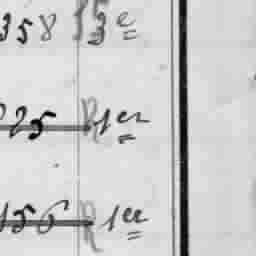 358 53e
225 R 1er
156 R 1er